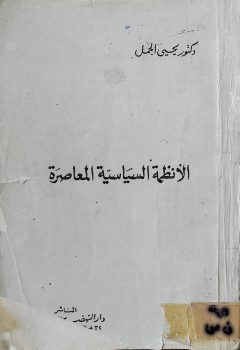 دكتور يحيى الجمل
الأنظمة السياسية المعاصرة
الناشر
دار النهضة